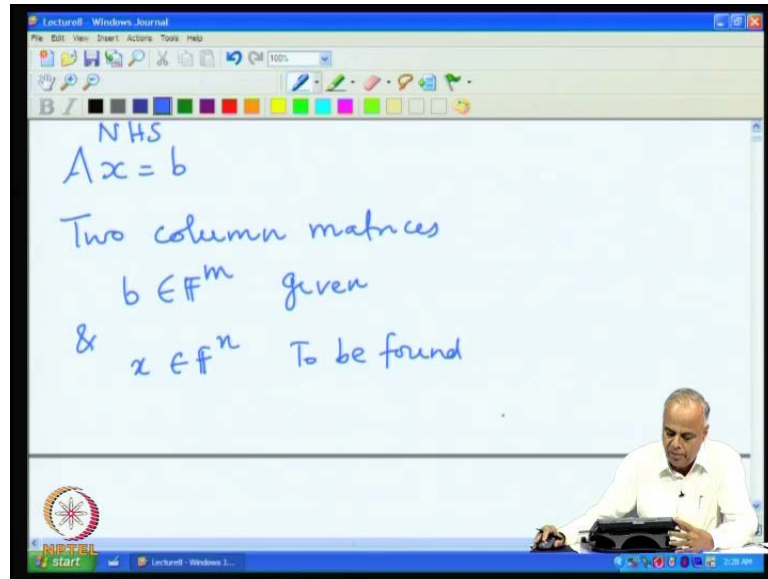 Lecture8 - Windows Journal
File Edit View Insert Actions Tools Help
100%
B I
NHS
Ax = b
Two column matrices
b ∈ 𝔽^m given
& x ∈ 𝔽^n To be found
NPTEL
start Lecture8 - Windows J... 2:28 AM